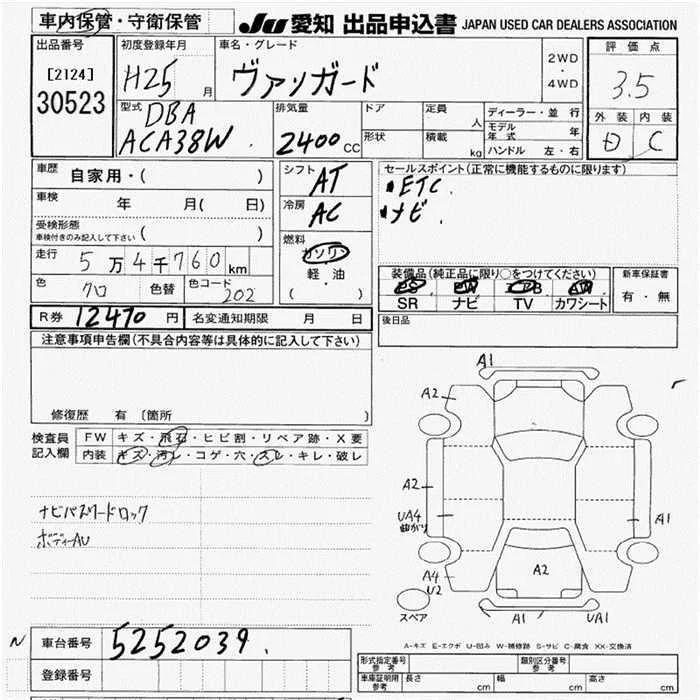 車内保管・守衛保管
JU 愛知 出品申込書 JAPAN USED CAR DEALERS ASSOCIATION
出品番号
[2124]
30523
初度登録年月
H25 月
車名・グレード
ヴァンガード
2WD
・
4WD
評価点
3.5
外装 内装
D C
型式
DBA
ACA38W
排気量
2400 CC
ドア
形状
定員 人
積載 kg
ディーラー・並行
モデル年式 年
ハンドル 左・右
車歴
自家用・( )
車検
年 月( 日)
受検形態
車検付きのみ記入して下さい ( )
走行
5万4千760km
色
クロ
色替
色コード
202
シフト
AT
冷房
AC
燃料
ガソリン
軽・油
( )
セールスポイント(正常に機能するものに限ります)
ETC.
ナビ.
装備品(純正品に限り○をつけてください)
SR ナビ TV カワシート
新車保証書
有・無
後日品
R券 12470 円 名変通知期限 月 日
注意事項申告欄(不具合内容等は具体的に記入して下さい)
修復歴 有 〔箇所 〕
検査員
記入欄
FW キズ・飛石・ヒビ割・リペア跡・X要
内装 キズ・汚レ・コゲ・穴・スレ・キレ・破レ
ナビパスワードロック
ボディーAU
A1
A2
A2
UA4
曲がり
A1
A2
A4
U2
A1
UA1
スペア
A-キズ E-エクボ U-凹み W-補修跡 S-サビ C-腐食 XX-交換済
N
車台番号
5252039.
登録番号
形式指定番号
参考
類別区分番号
参考
車庫証明用
参考
長さ cm 幅 cm 高さ cm